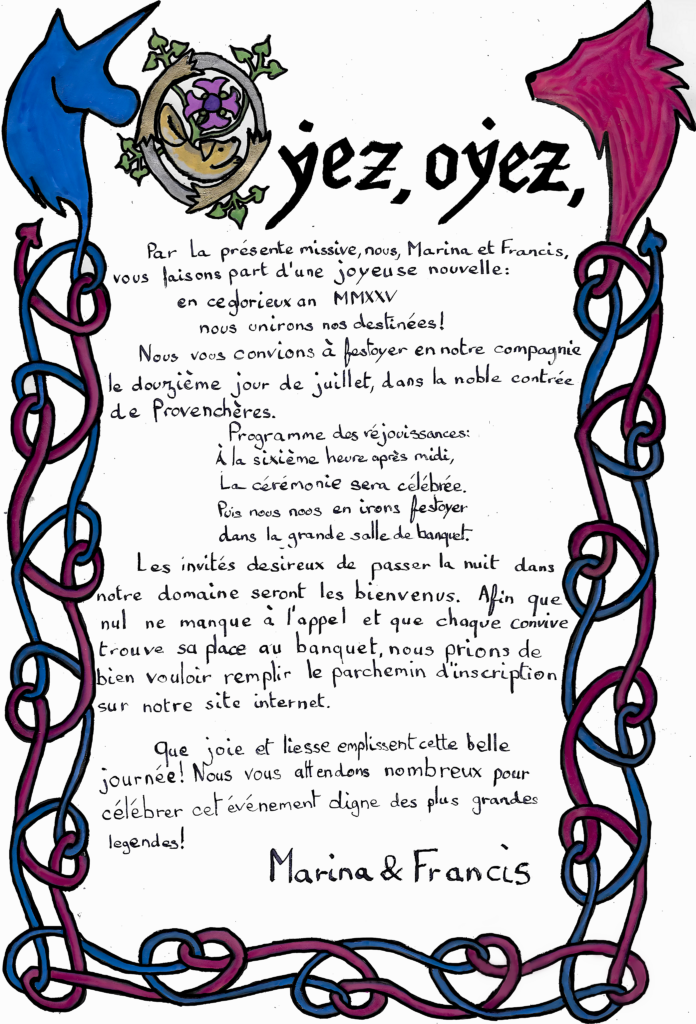 Oyez, oyez,
Par la présente missive, nous, Marina et Francis,
vous faisons part d'une joyeuse nouvelle:
en ce glorieux an MMXXV
nous unirons nos destinées!
Nous vous convions à festoyer en notre compagnie
le douzième jour de juillet, dans la noble contrée
de Provenchères.
Programme des réjouissances:
À la sixième heure après midi,
La cérémonie sera célébrée.
Puis nous nous en irons festoyer
dans la grande salle de banquet.
Les invités desireux de passer la nuit dans
notre domaine seront les bienvenus. Afin que
nul ne manque à l'appel et que chaque convive
trouve sa place au banquet, nous prions de
bien vouloir remplir le parchemin d'inscription
sur notre site internet.
Que joie et liesse emplissent cette belle
journée! Nous vous attendons nombreux pour
célébrer cet événement digne des plus grandes
legendes!
Marina & Francis